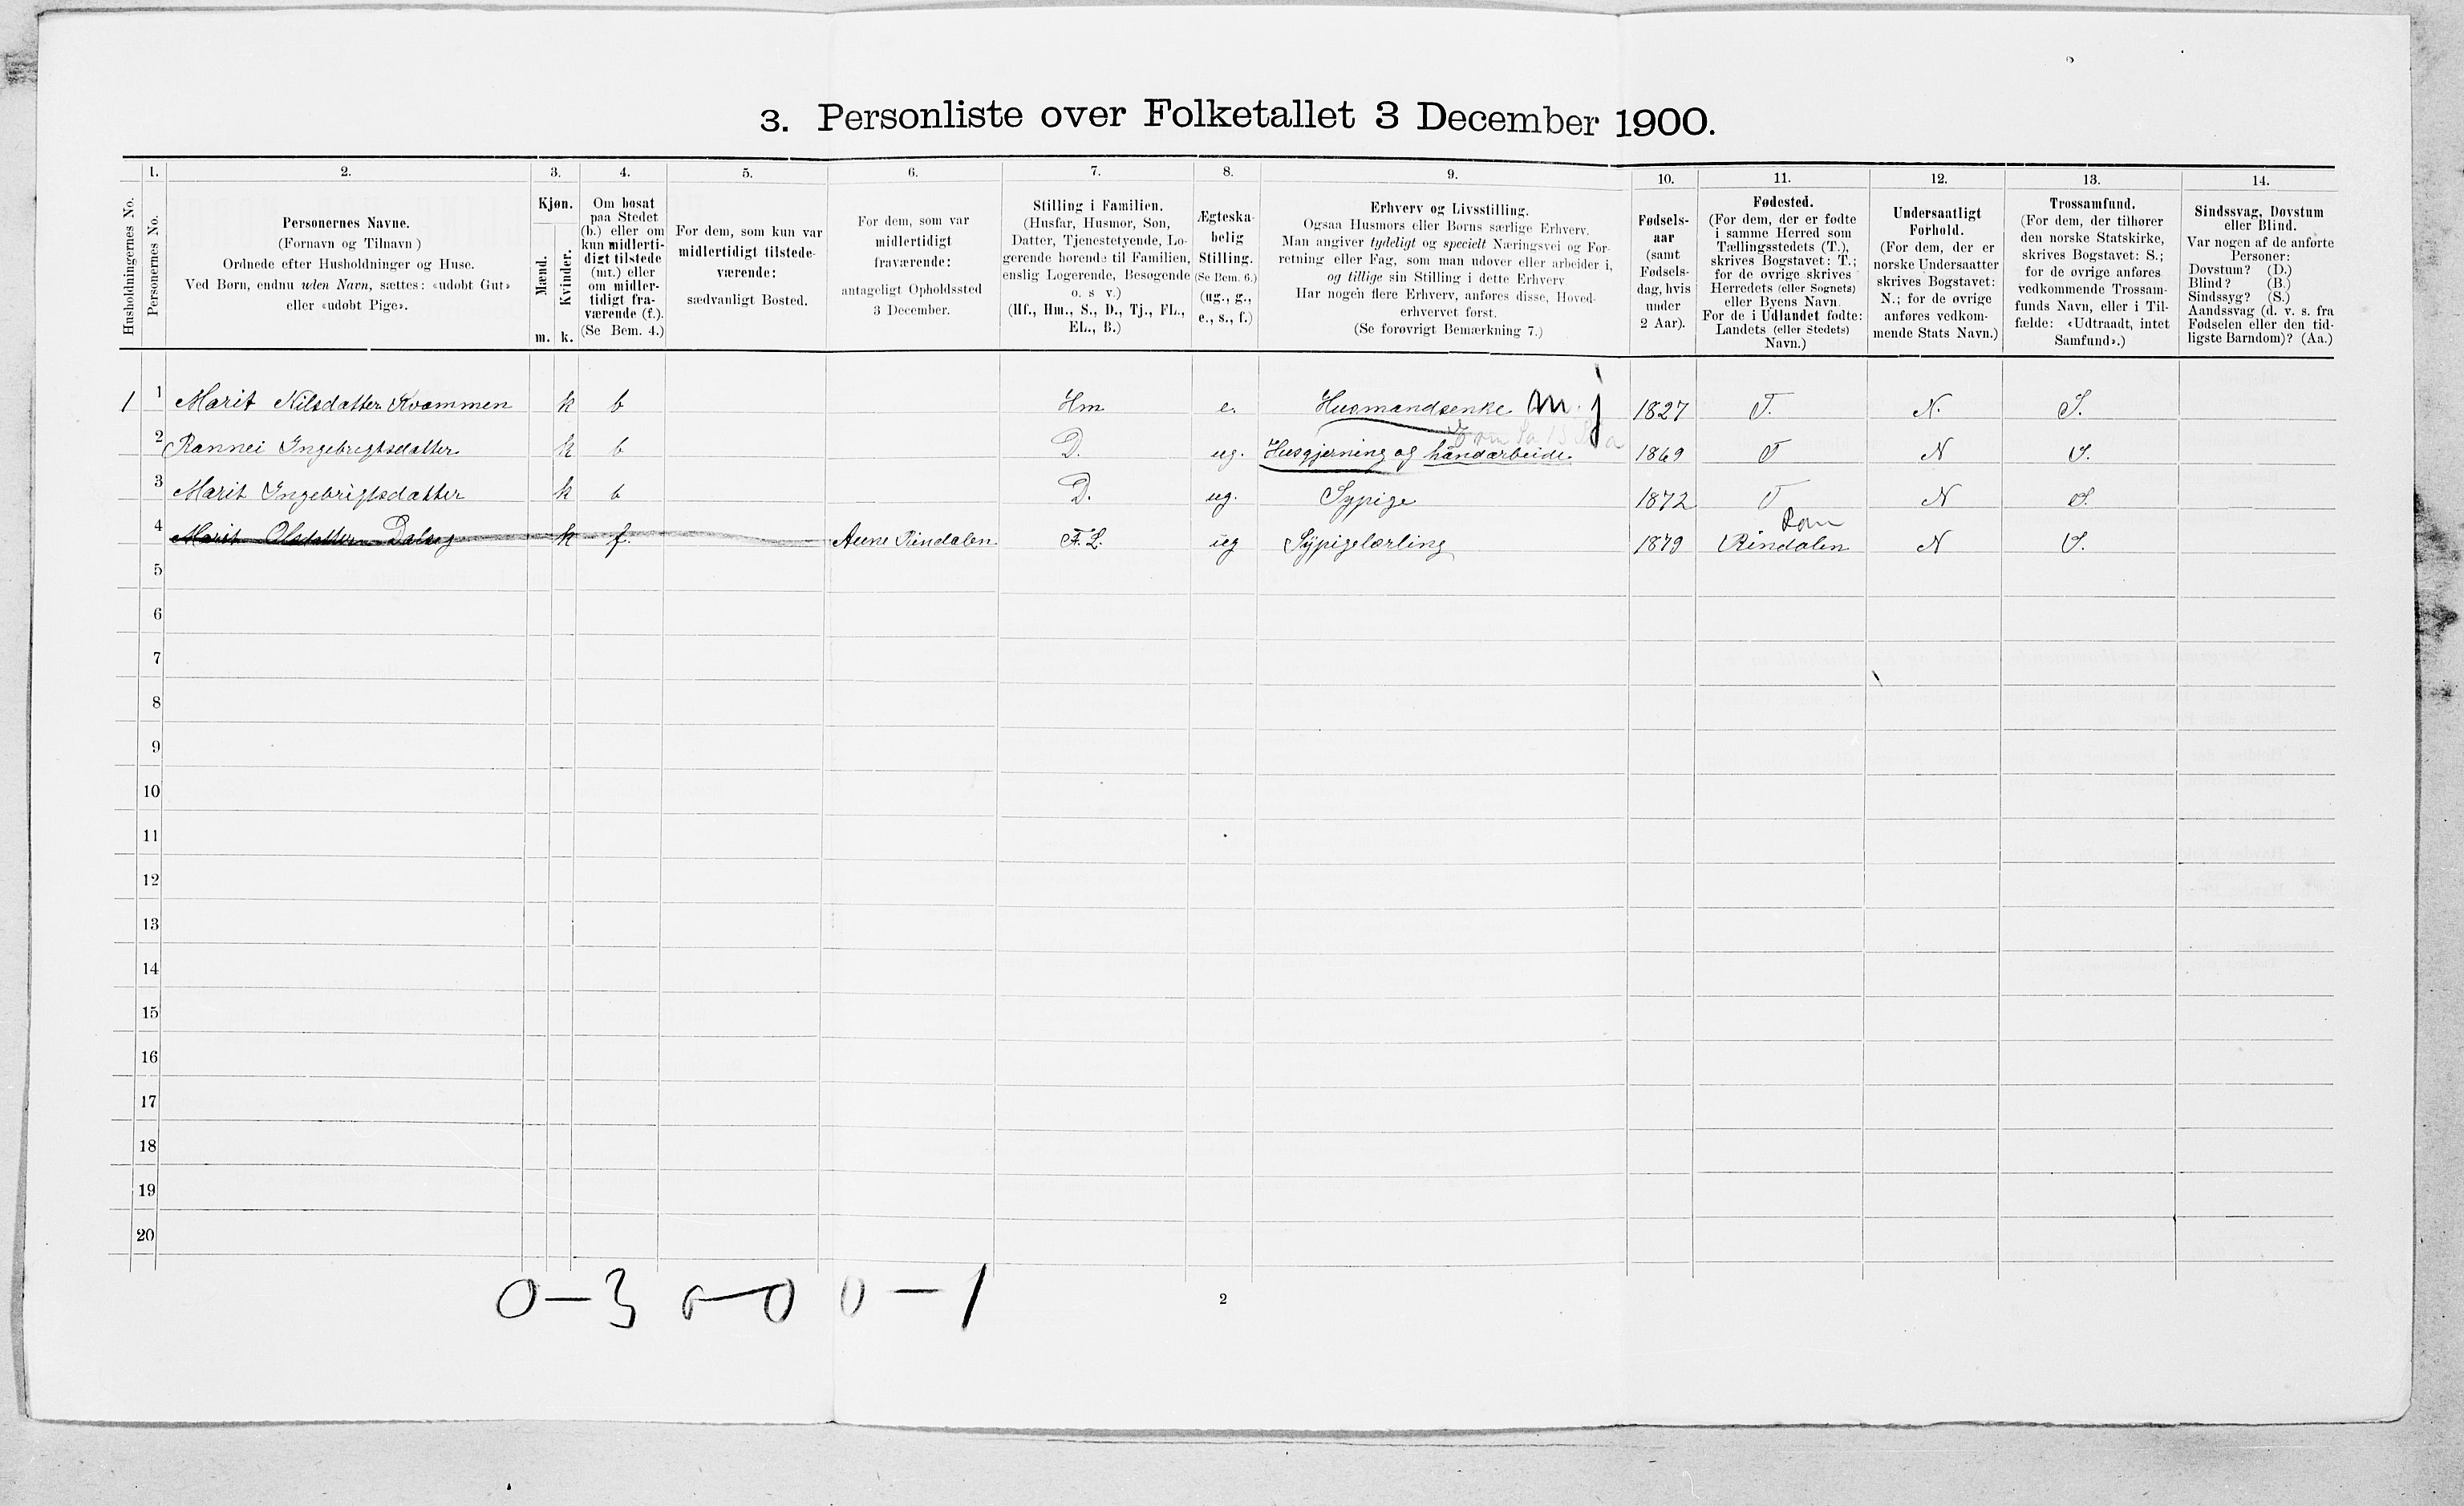 3. Personliste over Folketallet 3 December 1900.
1. 2. 3. 4. 5. 6. 7. 8. 9. 10. 11. 12. 13. 14.
Husholdningernes No.
Personernes No.
Personernes Navne.
(Fornavn og Tilnavn)
Ordnede efter Husholdninger og Huse.
Ved Børn, endnu uden Navn, sættes: «udøbt Gut»
eller «udøbt Pige».
Kjøn.
Mænd.
Kvinder.
m. k.
Om bosat
paa Stedet
(b.) eller om
kun midlerti-
digt tilstede
(mt.) eller
om midler-
tidigt fra-
værende (f.).
(Se Bem. 4.)
For dem, som kun var
midlertidigt tilstede-
værende:
sædvanligt Bosted.
For dem, som var
midlertidigt
fraværende:
antageligt Opholdssted
3 December.
Stilling i Familien.
(Husfar, Husmor, Søn,
Datter, Tjenestetyende, Lo-
gerende hørende til Familien,
enslig Logerende, Besøgende
o. s v.)
(Hf., Hm., S., D., Tj., FL.,
EL., B.)
Ægteska-
belig
Stilling.
(Se Bem. 6.)
(ug., g.,
e., s., f.)
Erhverv og Livsstilling.
Ogsaa Husmors eller Børns særlige Erhverv.
Man angiver tydeligt og specielt Næringsvei og For-
retning eller Fag, som man udøver eller arbeider i,
og tillige sin Stilling i dette Erhverv
Har nogen flere Erhverv, anføres disse, Hoved-
erhvervet først.
(Se forøvrigt Bemærkning 7.)
Fødsels-
aar
(samt
Fødsels-
dag, hvis
under
2 Aar).
Fødested.
(For dem, der er fødte
i samme Herred som
Tællingsstedets (T.),
skrives Bogstavet: T.;
for de øvrige skrives
Herredets (eller Sognets)
eller Byens Navn.
For de i Udlandet fødte:
Landets (eller Stedets)
Navn.)
Undersaatligt
Forhold.
(For dem, der er
norske Undersaatter
skrives Bogstavet:
N.; for de øvrige
anføres vedkom-
mende Stats Navn.)
Trossamfund.
(For dem, der tilhører
den norske Statskirke,
skrives Bogstavet: S.;
for de øvrige anføres
vedkommende Trossam-
funds Navn, eller i Til-
fælde: «Udtraadt, intet
Samfund».)
Sindssvag, Døvstum
eller Blind.
Var nogen af de anførte
Personer:
Døvstum? (D.)
Blind? (B.)
Sindssyg? (S.)
Aandssvag (d. v. s. fra
Fødselen eller den tid-
ligste Barndom)? (Aa.)
1 1 Marit Nilsdatter Kvammen k b Hm e. Husmandsenke m. j 1827 T. N. S.
2 Rannei Ingebrigtsdatter k b D. ug. Husgjerning og håndarbeide. 1869 T N S.
3 Marit Ingebrigtsdatter k b D. ug. Sypige 1872 T N S.
4 Marit Olsdatter k f. Aune Rindalen F.L. ug Sypigelærling 1879 Rindalen N S.
Rom
5
6
7
8
9
10
11
12
13
14
15
16
17
18
19
20
0-3 0-0 0-1
2